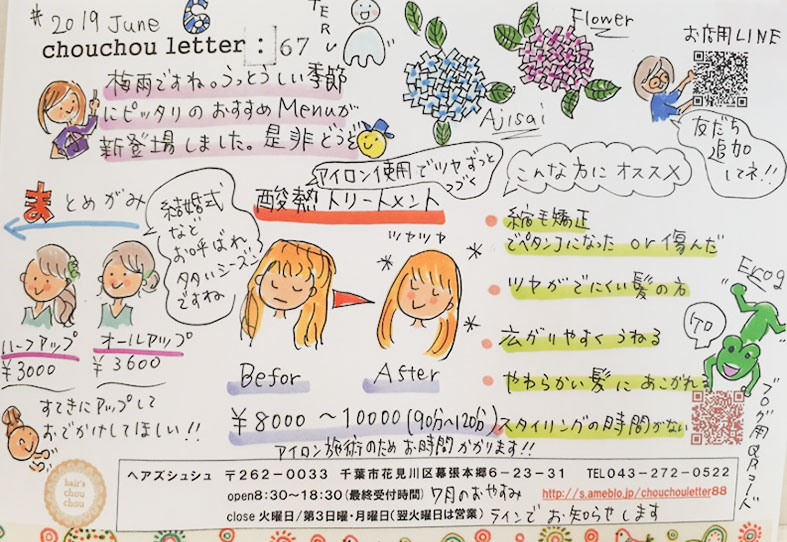 # 2019 June 6
chouchou letter : 67
TERU
Flower
Ajisai
お店用LINE
友だち
追加
してネ!!
梅雨ですね。うっとうしい季節
にピッタリのおすすめMenuが
新登場しました。是非どうぞ
まとめがみ
結婚式
など
お呼ばれ
多いシーズン
ですね
ハーフアップ
¥3000
オールアップ
¥3600
すてきにアップして
おでかけしてほしい!!
アイロン使用でツヤずっと
つづく
酸熱トリートメント
ツヤツヤ
Befor
After
¥8000〜10000(90分〜120分)
アイロン施術のためお時間かかります!!
こんな方にオススメ
縮毛矯正
でペタンコになった or 傷んだ
ツヤがでにくい髪の方
広がりやすくうねる
やわらかい髪にあこがれる
スタイリングの時間がない
Frog
ブログ用QRコード
hair's
chou
chou
ヘアズシュシュ 〒262-0033 千葉市花見川区幕張本郷6-23-31 TEL043-272-0522
open8:30~18:30(最終受付時間) 7月のおやすみ http://s.ameblo.jp/chouchouletter88
close 火曜日/第3日曜・月曜日(翌火曜日は営業) ラインでお知らせします